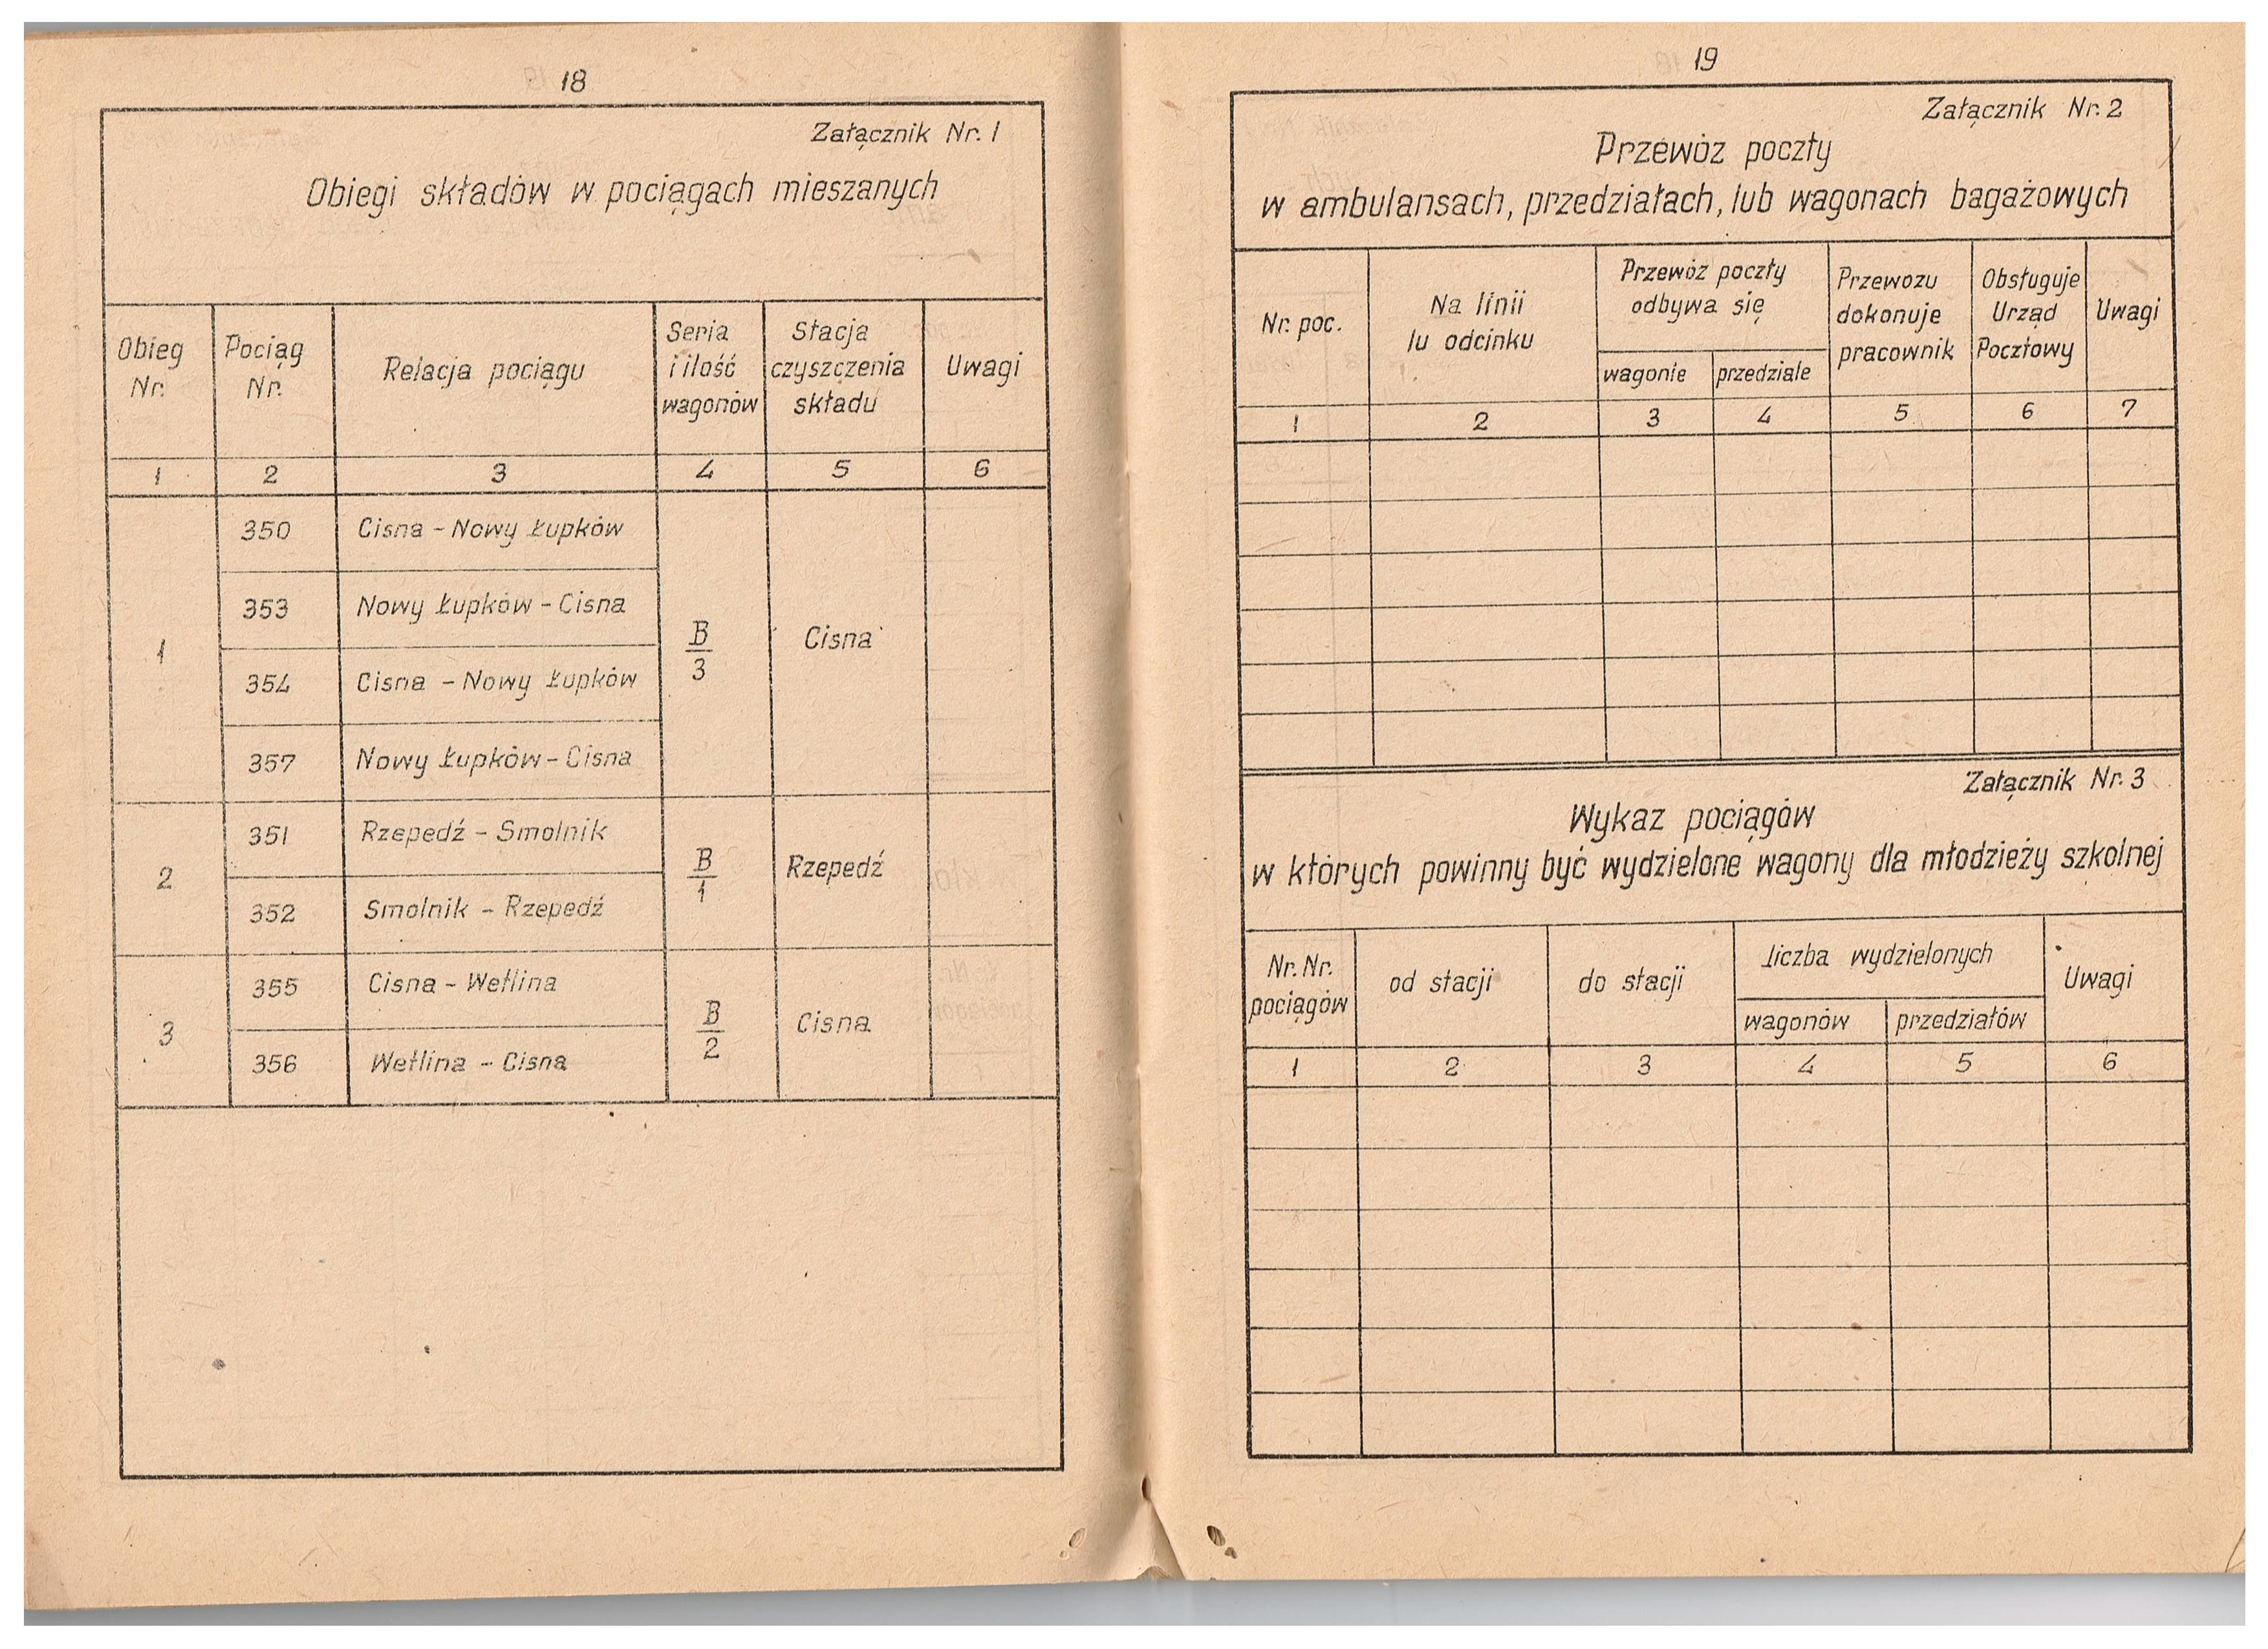 18
Załącznik Nr. 1
Obiegi składów w pociągach mieszanych
Obieg Nr.
Pociąg Nr.
Relacja pociągu
Seria i ilość wagonów
Stacja czyszczenia składu
Uwagi
1 2 3 4 5 6
1
350 Cisna - Nowy Łupków
353 Nowy Łupków - Cisna
354 Cisna - Nowy Łupków
357 Nowy Łupków - Cisna
B
3
Cisna
2
351 Rzepedź - Smolnik
352 Smolnik - Rzepedź
B
1
Rzepedź
3
355 Cisna - Wetlina
356 Wetlina - Cisna
B
2
Cisna
19
Załącznik Nr. 2
Przewóz poczty
w ambulansach, przedziałach, lub wagonach bagażowych
Nr. poc.
Na linii
lu odcinku
Przewóz poczty
odbywa się
wagonie przedziale
Przewozu
dokonuje
pracownik
Obsługuje
Urząd
Pocztowy
Uwagi
1 2 3 4 5 6 7
Załącznik Nr. 3
Wykaz pociągów
w których powinny być wydzielone wagony dla młodzieży szkolnej
Nr. Nr.
pociągów
od stacji
do stacji
liczba wydzielonych
wagonów przedziałów
Uwagi
1 2 3 4 5 6